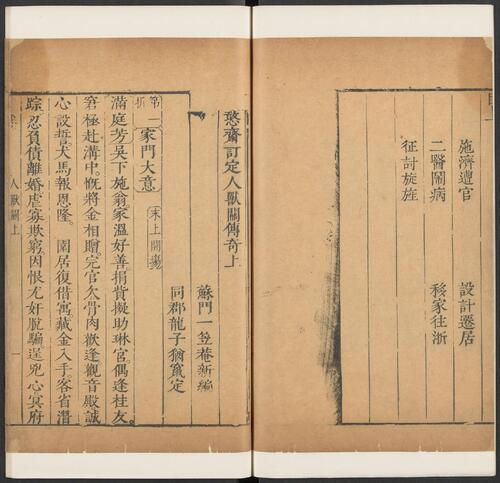 施濟遭官 設計遷居
二醫鬧病 移家往浙
征討旋旌
憨齋訂定人獸關傳奇上
蘇門一笠菴新編
同郡龍子猶竄定
第一折 家門大意 末上開場
滿庭芳吳下施翁。家溫好善。捐貲擬助琳宮。偶逢桂友。
窘極赴溝中。慨將金相贈。完官欠骨肉歡逢觀音殿誠
心設誓。犬馬報恩隆。 園居復借寓。藏金入手。客省潛
踪。忍負債離婚。虐寡欺窮。因恨尤奸脫騙逞兇心冥府
人獸關上 一